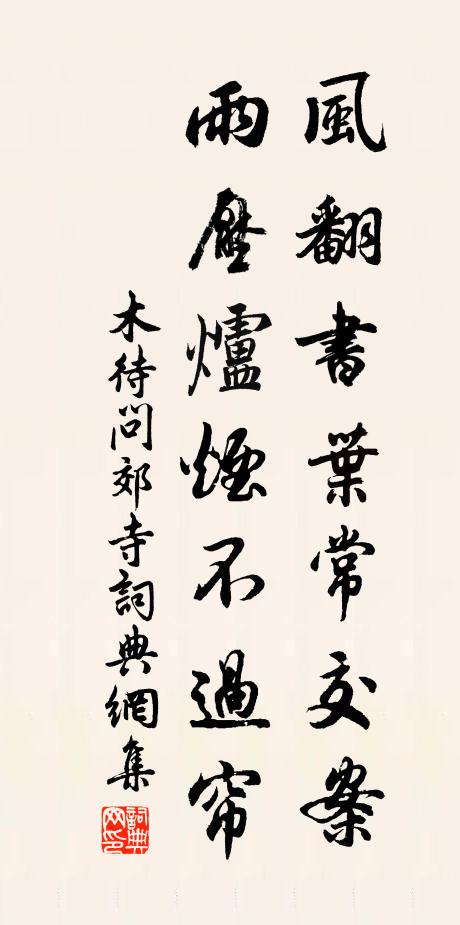 風翻書葉常交案
雨壓爐煙不過帘
木待問郊寺詞典網集
詞典网印